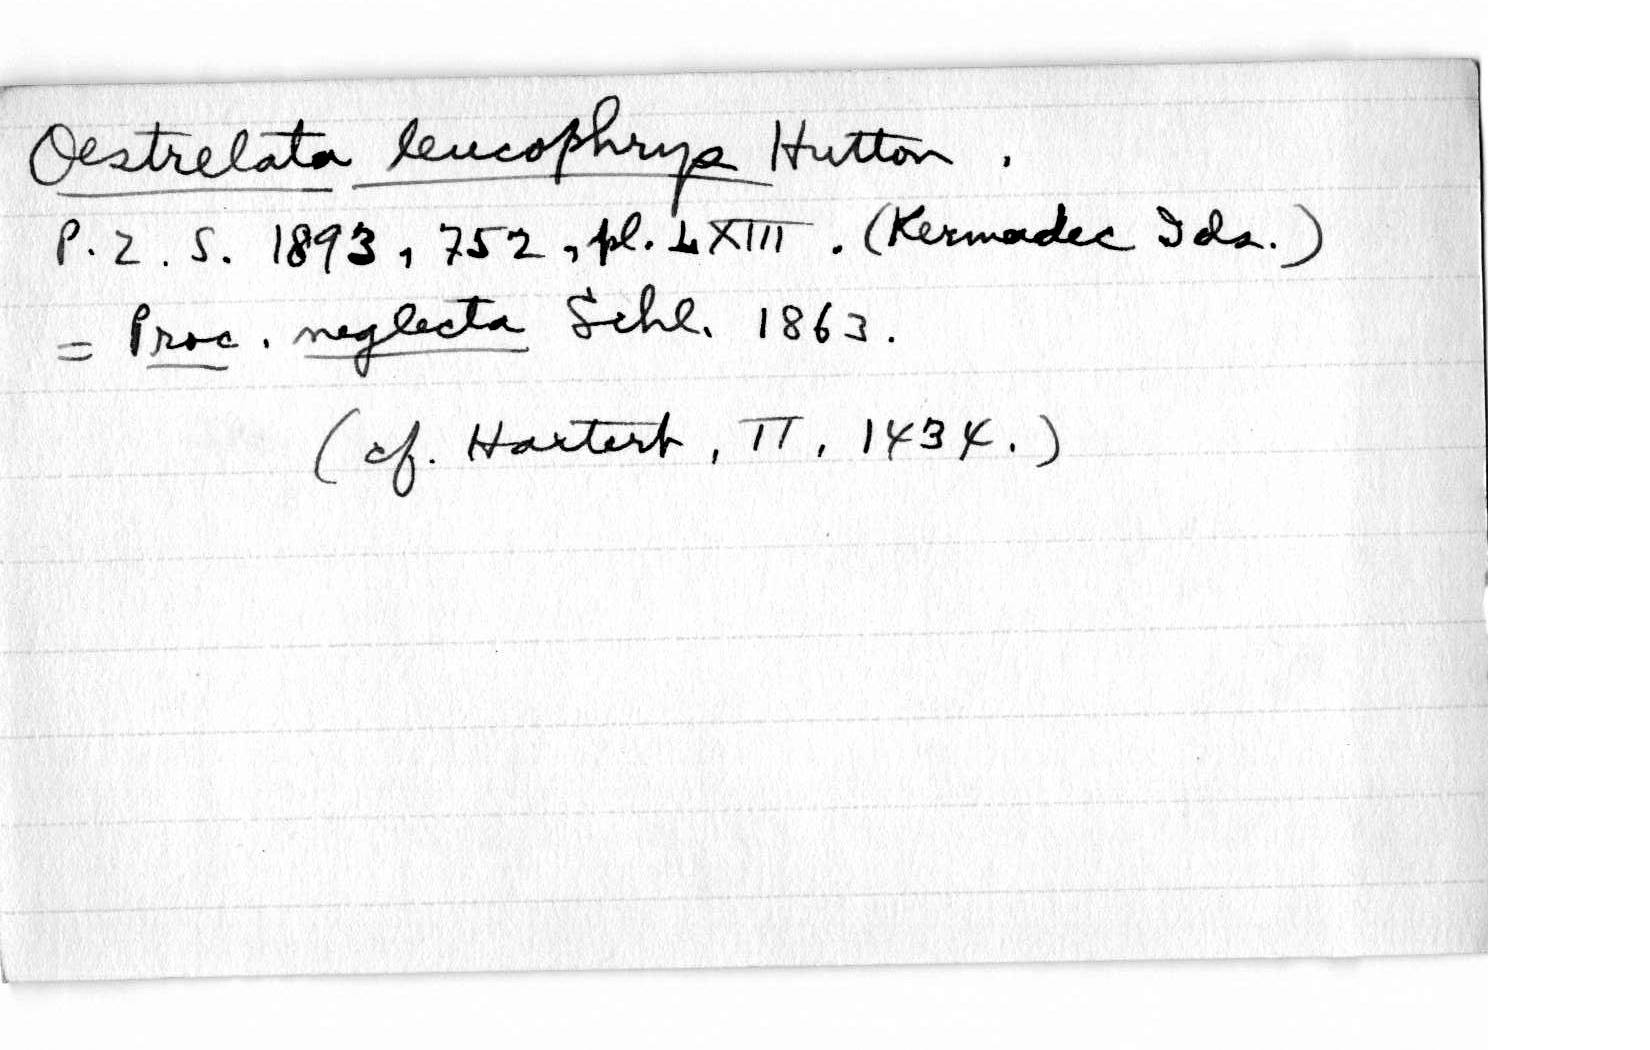 Oestrelata leucophrys Hutton.
P. Z. S. 1893, 752, pl. LXIII. (Kermadec Ids.)
= Proc. neglecta Schl. 1863.
(cf. Hartert, II, 1434.)